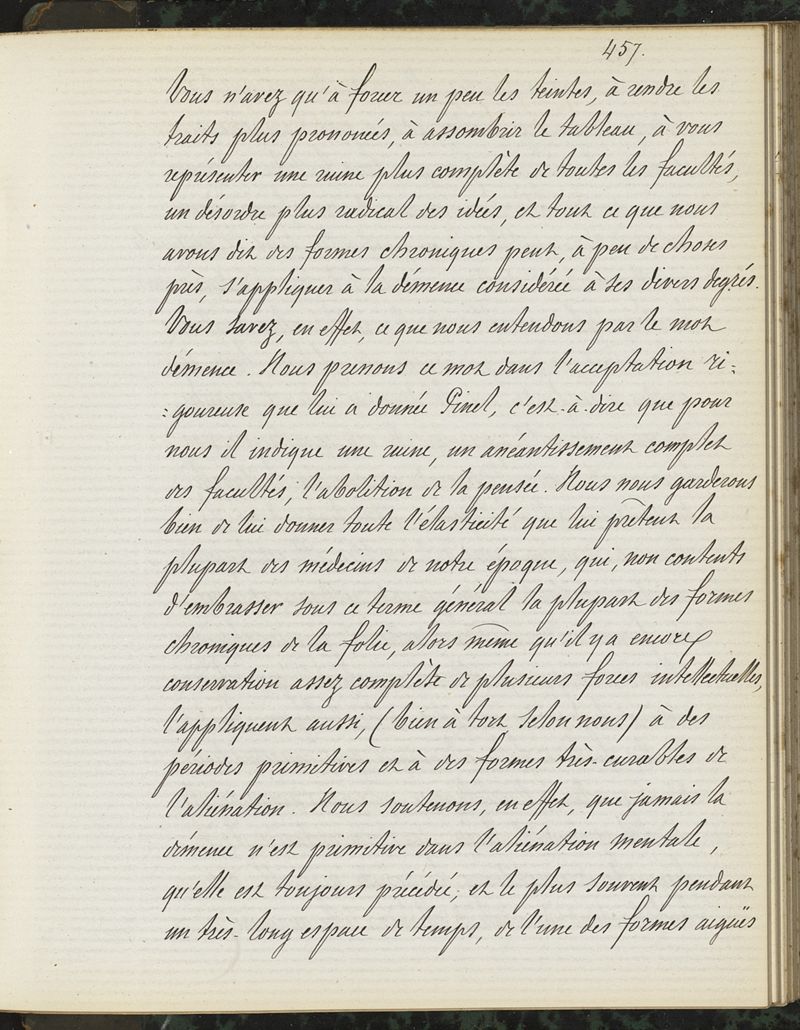 457.
Vous n'avez qu'à forcer un peu les teintes, à rendre les
traits plus prononcés, à assombrir le tableau, à vous
représenter une ruine plus complète de toutes les facultés,
un désordre plus radical des idées, et tout ce que nous
avons dit des formes chroniques peut, à peu de choses
près, s'appliquer à la démence considérée à ses divers degrés.
Vous savez, en effet, ce que nous entendons par le mot
démence. Nous prenons ce mot dans l'acceptation ri=
=goureuse que lui a donnée Pinel, c'est-à-dire que pour
nous il indique une ruine, un anéantissement complet
des facultés, l'abolition de la pensée. Nous nous garderons
bien de lui donner toute l'élasticité que lui prêtent la
plupart des médecins de notre époque, qui, non contents
d'embrasser sous ce terme général la plupart des formes
chroniques de la folie, alors même qu'il y a encore
conservation assez complète de plusieurs forces intellectuelles,
l'appliquent aussi, (bien à tort, selon nous) à des
périodes primitives et à des formes très-curables de
l'aliénation. Nous soutenons, en effet, que jamais la
démence n'est primitive dans l'aliénation mentale,
qu'elle est toujours précédée, et le plus souvent pendant
un très-long espace de temps, de l'une des formes aiguës